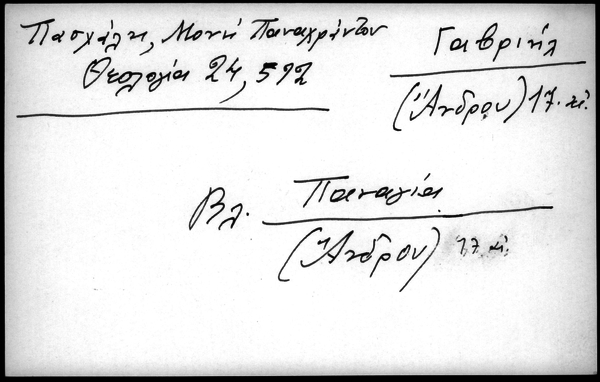 Πασχάλη, Μονή Παναχράντου
Θεολογία 24, 592
Γαβριήλ
(Ἄνδρου) 17. αἰ.
Βλ. Παναγία
(Ἄνδρου) 17 αἰ.